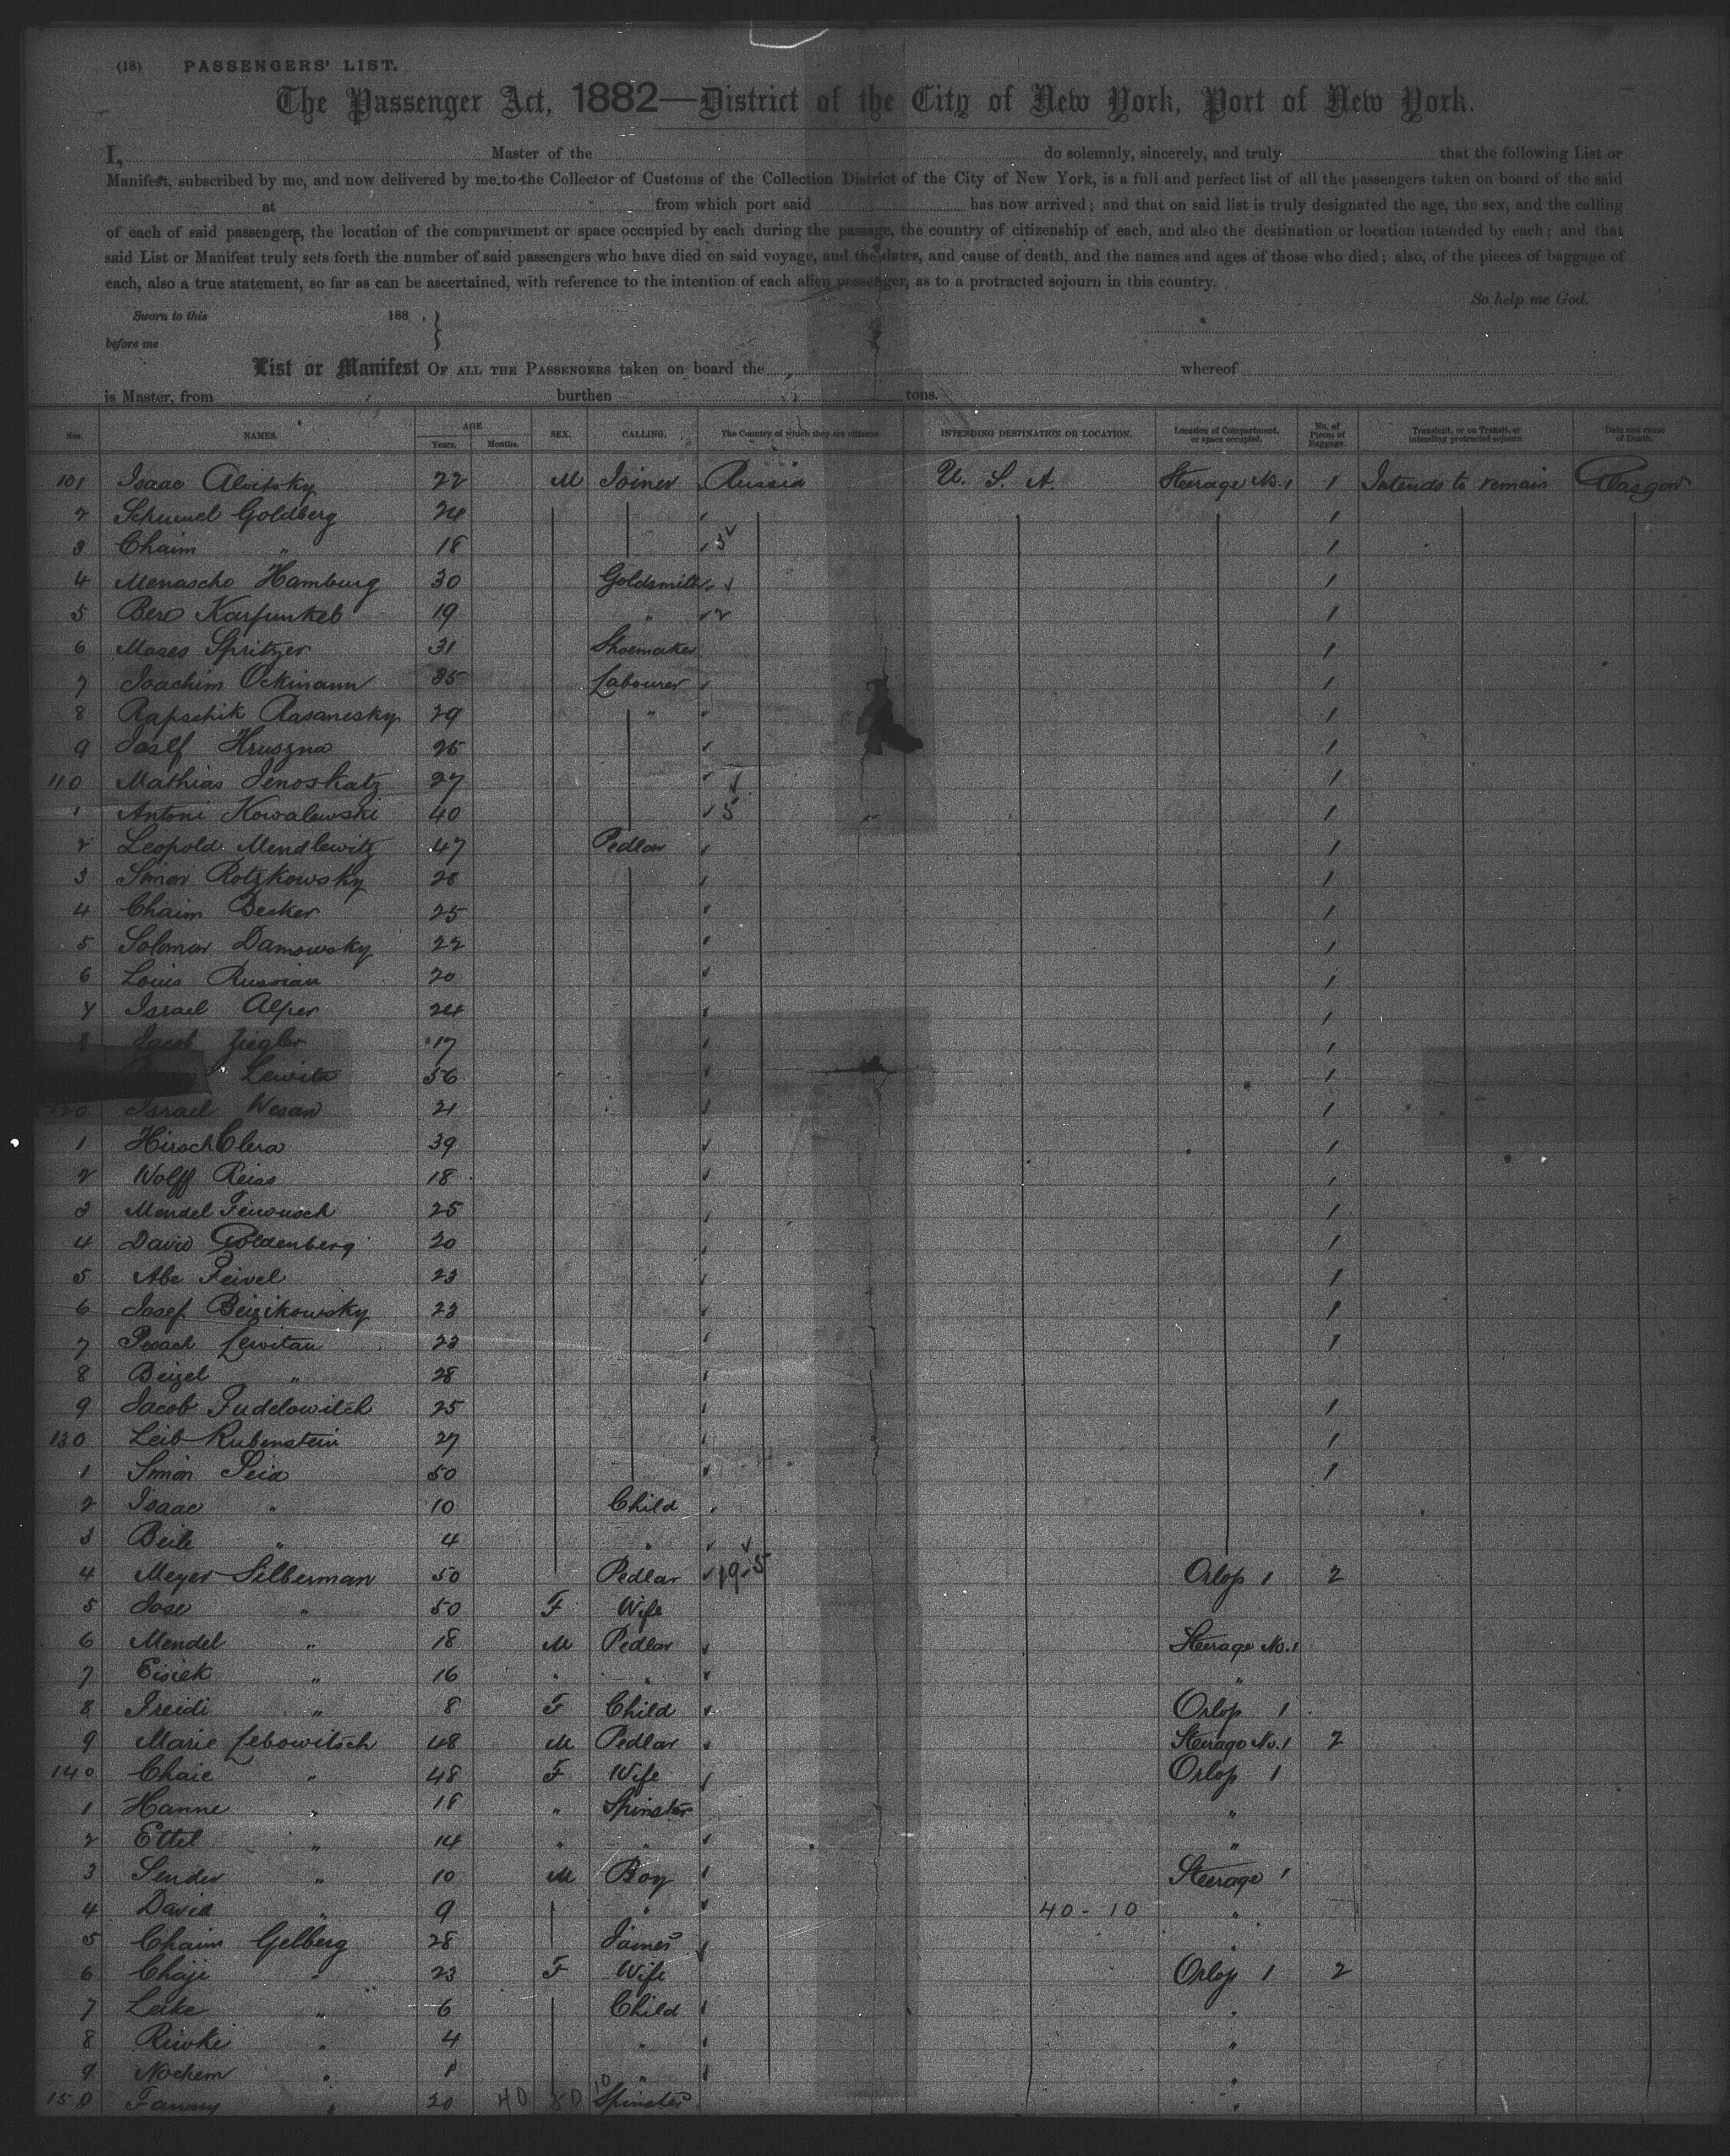 (18) PASSENGERS' LIST.
The Passenger Act, 1882—District of the City of New York, Port of New York.
I, Master of the do solemnly, sincerely, and truly that the following List or
Manifest, subscribed by me, and now delivered by me to the Collector of Customs of the Collection District of the City of New York, is a full and perfect list of all the passengers taken on board of the said
at from which port said has now arrived; and that on said list is truly designated the age, the sex, and the calling
of each of said passengers, the location of the compartment or space occupied by each during the passage, the country of citizenship of each, and also the destination or location intended by each; and that
said List or Manifest truly sets forth the number of said passengers who have died on said voyage, and the dates, and cause of death, and the names and ages of those who died; also, of the pieces of baggage of
each, also a true statement, so far as can be ascertained, with reference to the intention of each alien passenger, as to a protracted sojourn in this country.
So help me God.
Sworn to this 188 .
before me
List or Manifest OF ALL THE PASSENGERS taken on board the whereof
is Master, from burthen tons.
Nos. NAMES. AGE Years. Months. SEX. CALLING. The Country of which they are citizens. INTENDING DESTINATION OR LOCATION. Location of Compartment, or space occupied. No. of Pieces of Baggage. Transient, or on Transit, or intending protracted sojourn. Date and cause of Death.
101 Isaac 22 M Joiner Russia U. S. A. Steerage No. 1 1 Intends to remain Glasgow
2 Schumel Goldberg 24 " 1
3 Chaim " 18 " 1
4 Menascho Hamburg 30 Goldsmith " 1
5 Ber Karfunkel 19 " " 1
6 Moses Spritzer 31 Shoemaker 1
7 Joachim Ockmann 35 Labourer " 1
8 Rapschik Rasanesky 29 " " 1
9 Josef Hruszna 25 " 1
110 Mathias Jenoskatz 27 " 1
1 Antoni Kowalewski 40 " 5 1
2 Leopold Mendlewitz 47 Pedlar " 1
3 Simon Rotzkowsky 28 " 1
4 Chaim Becker 25 " 1
5 Solomon Damowsky 22 " 1
6 Louis Russian 20 " 1
7 Israel Alper 24 " 1
8 Jacob Ziegler 17 " 1
Lewita 56 " 1
120 Israel Wesan 21 " 1
1 Hirsch Clera 39 " 1
2 Wolff Reiss 18 " 1
3 Mendel 25 " 1
4 David Goldenberg 20 " 1
5 Abe Feivel 23 " 1
6 Josef Beizikowsky 23 " 1
7 Pesach Lewitan 23 " 1
8 Beizel " 28 "
9 Jacob Judelowitch 25 " 1
130 Leib Rubenstein 27 " 1
1 Simon 50 " 1
2 Isaac " 10 Child "
3 Beile " 4 " "
4 Meyer Silberman 50 Pedlar " Orlop 1 2
5 Jose " 50 F Wife
6 Mendel " 18 M Pedlar " Steerage No. 1
7 Eisiek " 16 " " " "
8 Freidi " 8 F Child " Orlop 1
9 Marie Lebowitsch 48 M Pedlar " Steerage No. 1 2
140 Chaie " 48 F Wife " Orlop 1
1 Hanne " 18 " Spinster "
2 Ettel " 14 " " " "
3 Sender " 10 M Boy " Steerage 1
4 David " 9 " " 40 - 10 "
5 Chaim Gelberg 28 " "
6 Chaje " 23 F Wife Orlop 1 2
7 Leike " 6 Child " "
8 Riwke " 4 " " "
9 Nochem " 1 " " "
150 Fanny " 20 40 50 10 Spinster "